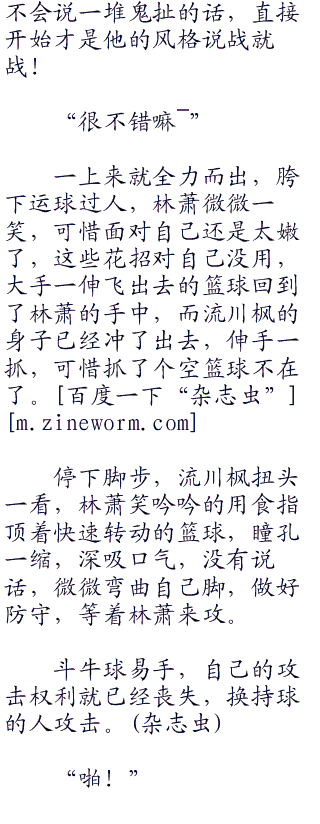 不会说一堆鬼扯的话，直接
开始才是他的风格说战就
战！
“很不错嘛¯”
一上来就全力而出，胯
下运球过人，林萧微微一
笑，可惜面对自己还是太嫩
了，这些花招对自己没用，
大手一伸飞出去的篮球回到
了林萧的手中，而流川枫的
身子已经冲了出去，伸手一
抓，可惜抓了个空篮球不在
了。[百度一下“杂志虫”]
[m.zineworm.com]
停下脚步，流川枫扭头
一看，林萧笑吟吟的用食指
顶着快速转动的篮球，瞳孔
一缩，深吸口气，没有说
话，微微弯曲自己脚，做好
防守，等着林萧来攻。
斗牛球易手，自己的攻
击权利就已经丧失，换持球
的人攻击。(杂志虫)
“啪！”